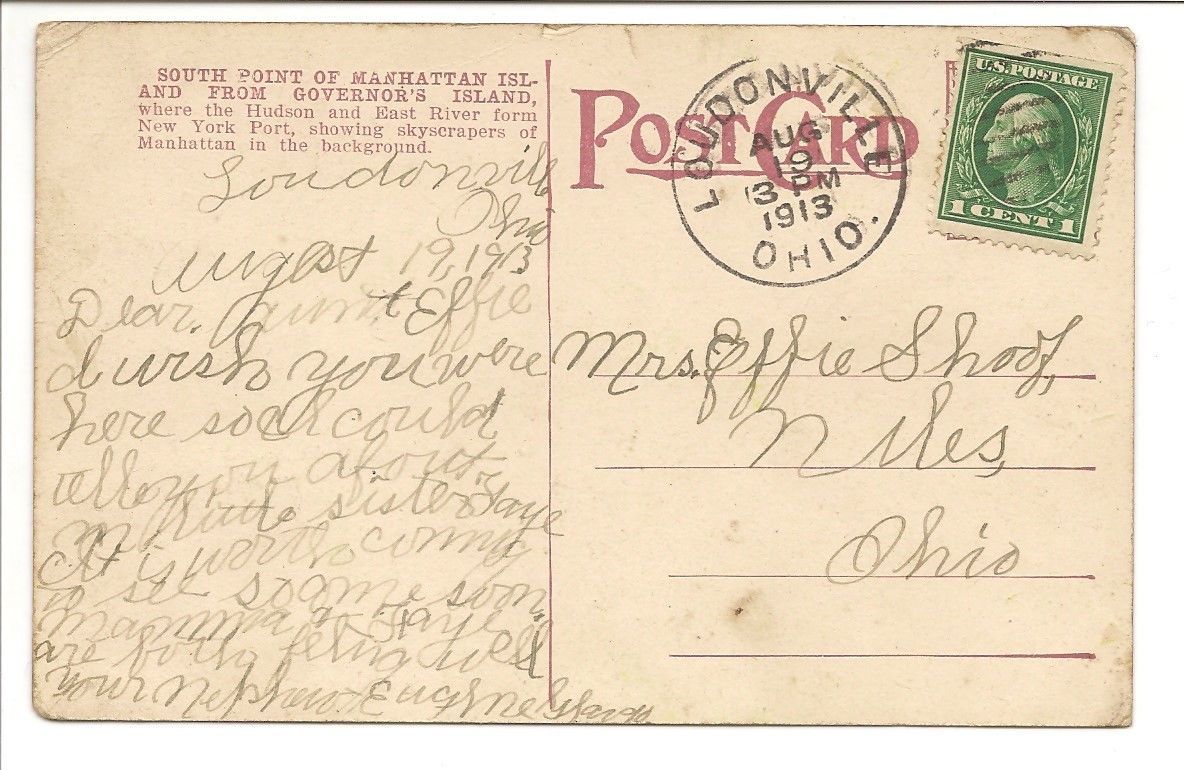 SOUTH POINT OF MANHATTAN ISL-
AND FROM GOVERNOR'S ISLAND,
where the Hudson and East River form
New York Port, showing skyscrapers of
Manhattan in the background.
Loudonville
Ohio
August 19, 1913
Dear, aunt Effie
I wish you were
here so I could
tell you about
My little sister Faye
It is worth coming
to see so come soon.
Mamma & Faye
are both feling well
your Nephew Eugene
POST CARD
LOUDONVILLE
AUG
19
3 PM
1913
OHIO.
U.S. POSTAGE
1 CENT 1
Mrs. Effie Shoof,
Niles,
Ohio